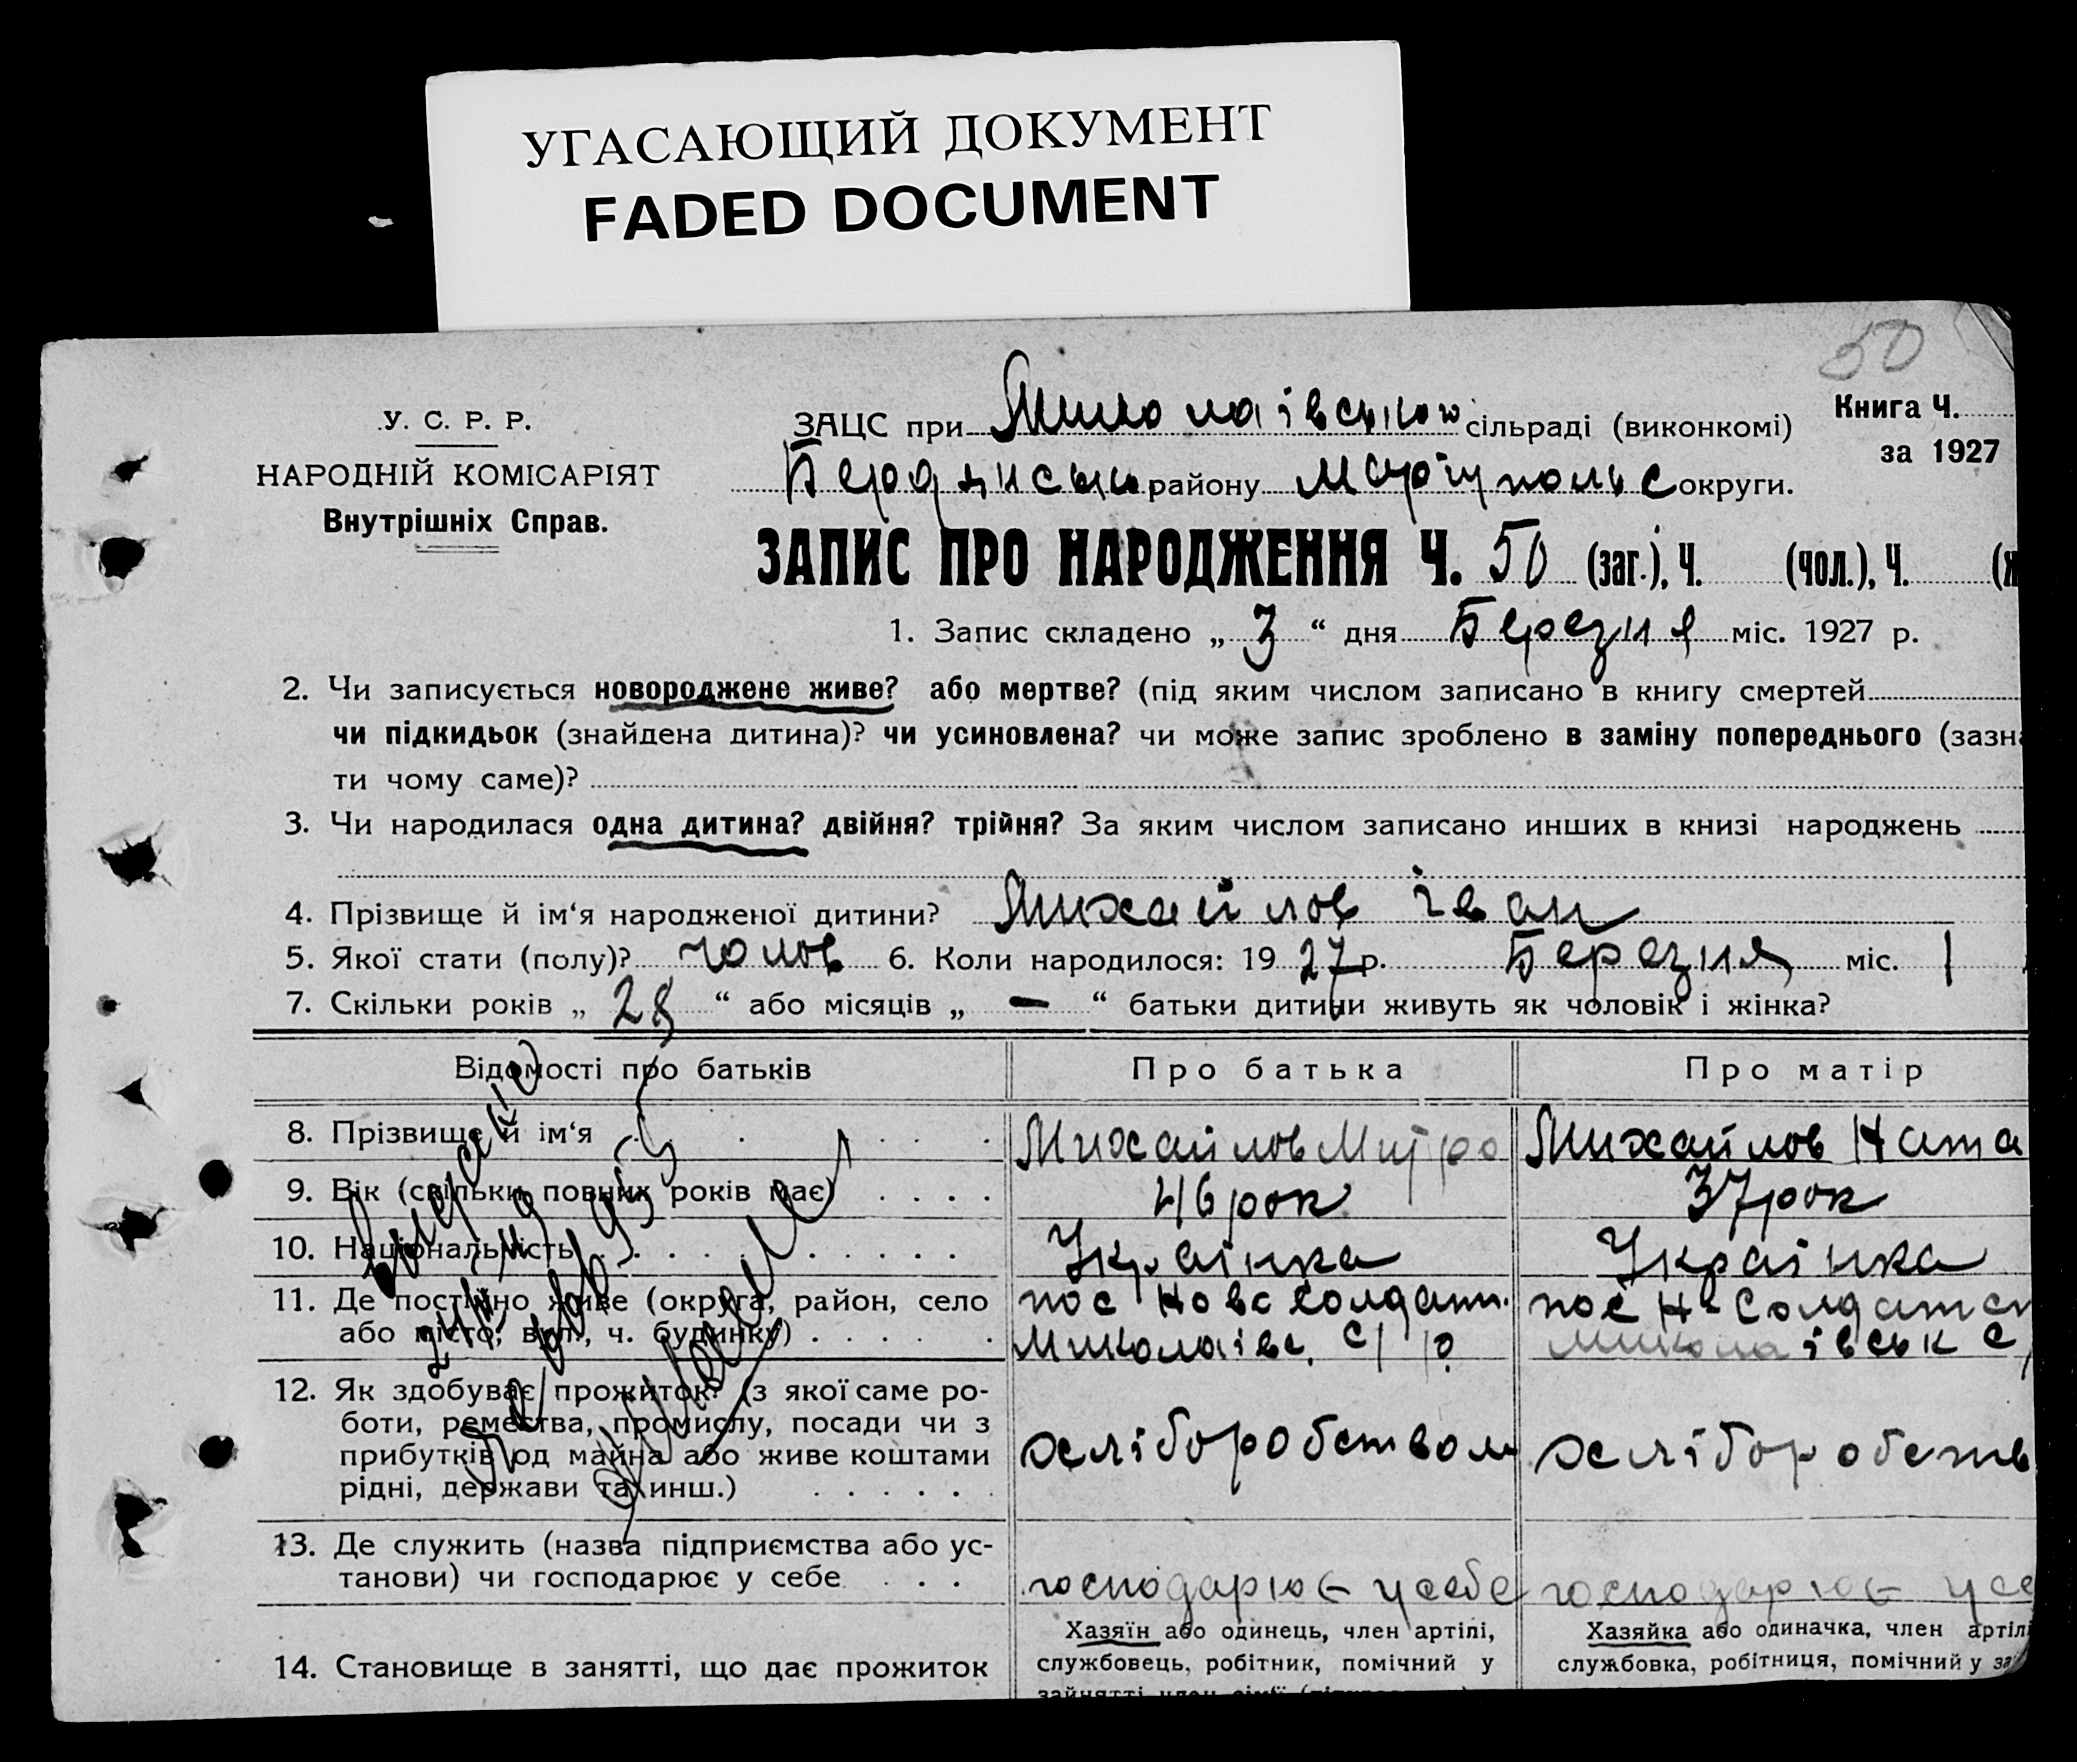 УГАСАЮЩИЙ ДОКУМЕНТ
FADED DOCUMENT
50
У. С. Р. Р.
НАРОДНІЙ КОМІСАРІЯТ
Внутрішніх Справ.
ЗАЦС при Миколаівській сільраді (виконкомі)
Книга Ч.
за 1927
району Маріупольс округи.
ЗАПИС ПРО НАРОДЖЕННЯ Ч. 50 (заг.), Ч. (чол.), Ч. (ж
1. Запис складено „ 3 “ дня Березня міс. 1927 р.
2. Чи записується новороджене живе? або мертве? (під яким числом записано в книгу смертей
чи підкидьок (знайдена дитина)? чи усиновлена? чи може запис зроблено в заміну попереднього (зазна
ти чому саме)?
3. Чи народилася одна дитина? двійня? трійня? За яким числом записано инших в книзі народжень
4. Прізвище й ім‘я народженої дитини? Михайлов Іван
5. Якої стати (полу)? чолов 6. Коли народилося: 19 27 р. Березня міс. 1
7. Скільки років „ 28 “ або місяців „ — “ батьки дитини живуть як чоловік і жінка?
Відомості про батьків Про батька Про матір
8. Прізвище й ім‘я Михайлов Митро Михайлов Ната
9. Вік (скільки повних років має) 46 рок 37 рок
10. Національність Украінка Украінка
11. Де постійно живе (округа, район, село пос Ново Солдатс. пос Н-Солдатсь
або місто, вул., ч. будинку) Миколаівс. с/р Миколаівськ с/
12. Як здобуває прожиток? (з якої саме ро-
боти, ремества, промислу, посади чи з
прибутків од майна або живе коштами хліборобством хліборобств
рідні, держави та инш.)
13. Де служить (назва підприємства або ус-
танови) чи господарює у себе господарює у себе господарює у се
Хазяїн або одинець, член артілі, Хазяйка або одиначка, член артілі
14. Становище в занятті, що дає прожиток службовець, робітник, помічний у службовка, робітниця, помічний у за